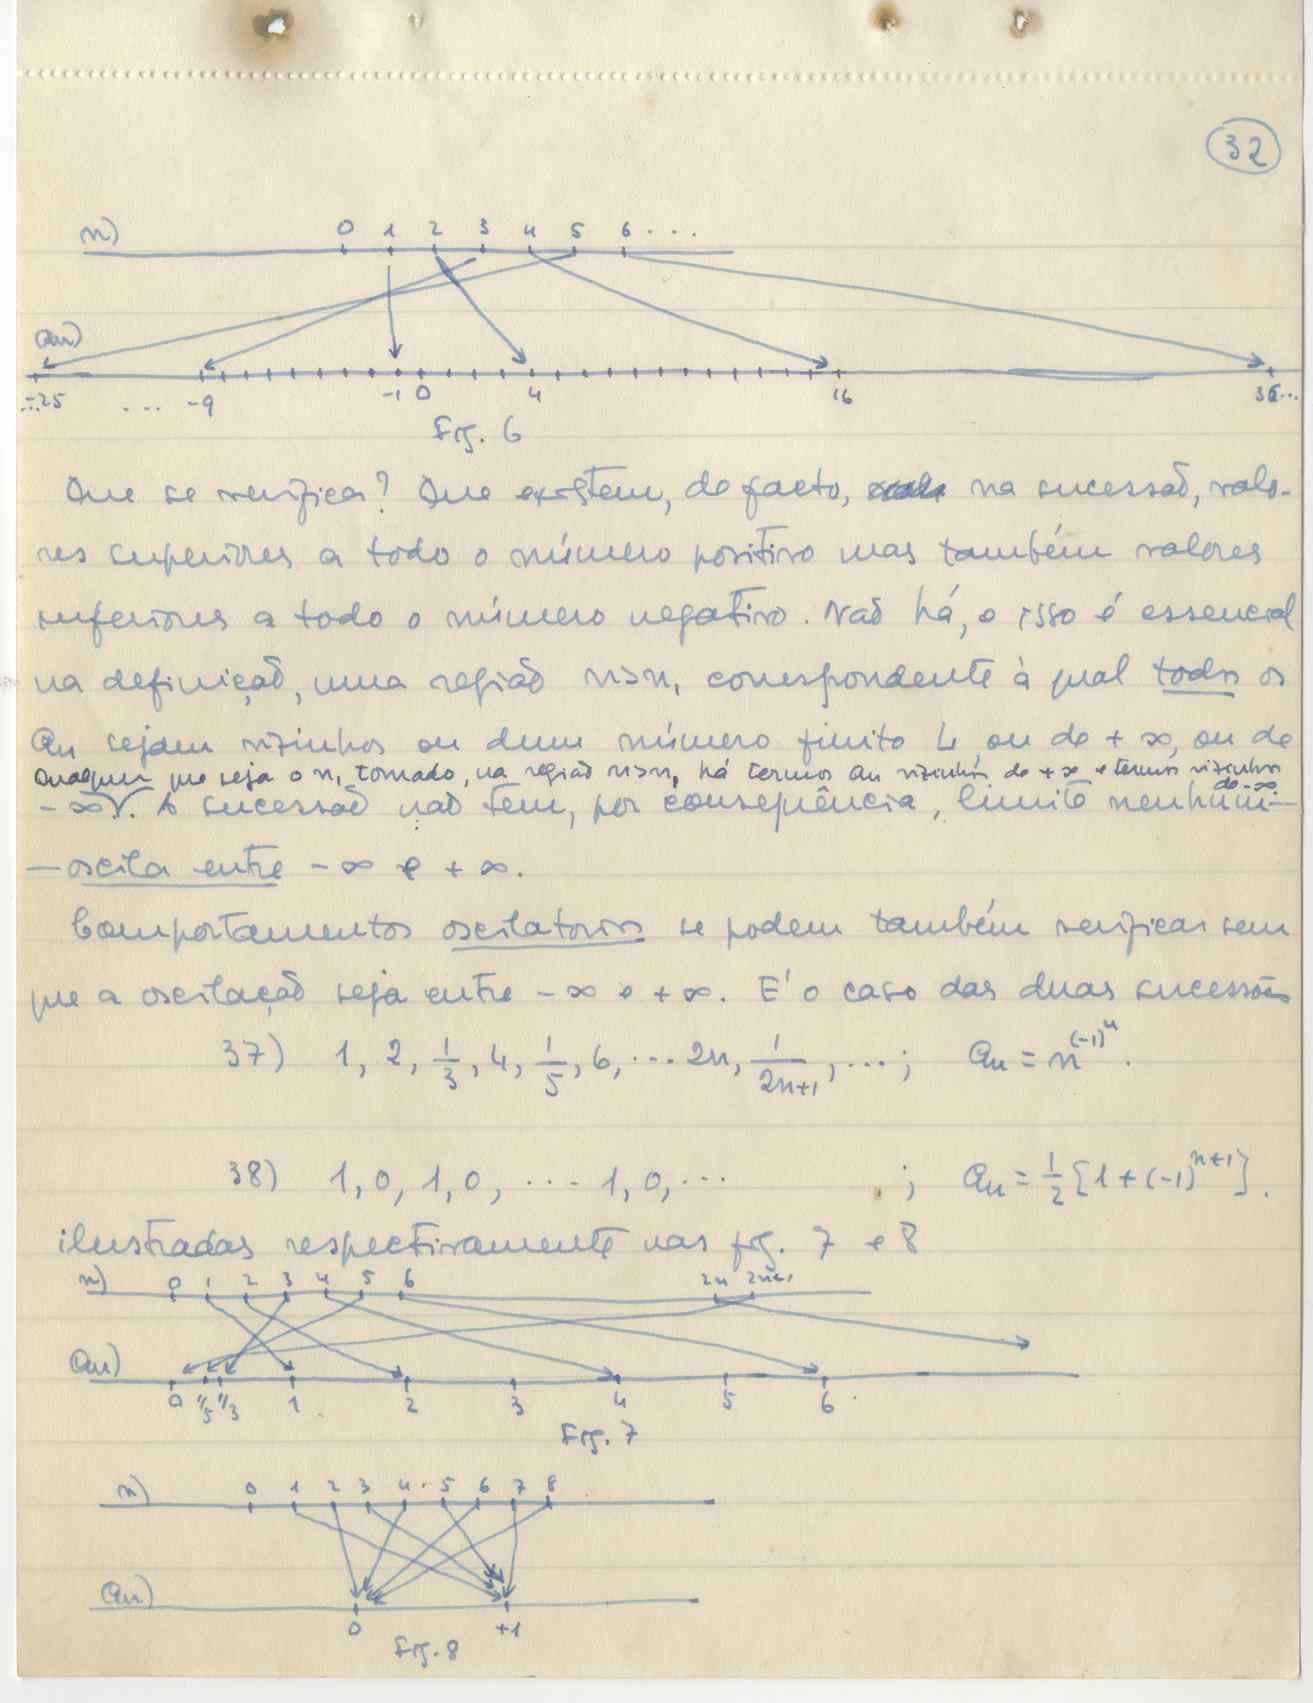 32
n) 0 1 2 3 4 5 6 ...
an)
...-25 ... -9 -1 0 4 16 36...
Fig. 6
Que se verifica? Que existem, de facto, na sucessão, valo-
res superiores a todo o número positivo mas também valores
inferiores a todo o número negativo. Não há, e isso é essencial
na definição, uma região n>n₁ correspondente à qual todos os
an sejam vizinhos ou dum número finito L, ou de +∞, ou de
Qualquer que seja o n₁ tomado, na região n>n₁ há termos an vizinhos de +∞ e termos vizinhos
de -∞.
-∞. A sucessão não tem, por consequência, limite nenhum —
— oscila entre -∞ e +∞.
Comportamentos oscilatorios se podem também verificar sem
que a oscilação seja entre -∞ e +∞. E' o caso das duas sucessões
37) 1, 2, 1/3, 4, 1/5, 6, ... 2n, 1/(2n+1), ...; an = n^(-1)^n.
38) 1, 0, 1, 0, ... 1, 0, ... ; an = 1/2 [1+(-1)^(n+1)].
ilustradas respectivamente nas fig. 7 e 8
n) 0 1 2 3 4 5 6 2n 2n+1
an)
0 1/5 1/3 1 2 3 4 5 6
Fig. 7
n) 0 1 2 3 4 5 6 7 8
an)
0 +1
Fig. 8